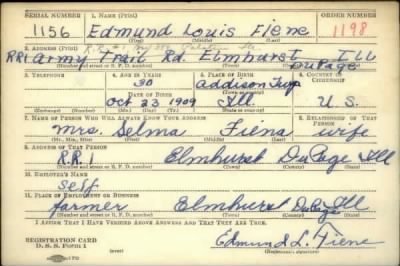 SERIAL NUMBER 1. NAME (Print) ORDER NUMBER
1156 Edmund Louis Fiene 1198
(First) (Middle) (Last)
2. ADDRESS (Print)
RR1 Army Trail Rd. Elmhurst Ill
DuPage
(Number and street or R. F. D. number) (Town) (County) (State)
3. TELEPHONE 4. AGE IN YEARS 5. PLACE OF BIRTH 6. COUNTRY OF CITIZENSHIP
30 Addison Twp
DATE OF BIRTH (Town or county)
Oct 23 1909 Ill U. S.
(Exchange) (No.) (Mo.) (Day) (Yr.) (State or country)
7. NAME OF PERSON WHO WILL ALWAYS KNOW YOUR ADDRESS 8. RELATIONSHIP OF THAT PERSON
Mrs. Selma Fiene wife
(Mr., Mrs., Miss) (First) (Middle) (Last)
9. ADDRESS OF THAT PERSON
R.R. 1 Elmhurst DuPage Ill
(Number and street or R. F. D. number) (Town) (County) (State)
10. EMPLOYER'S NAME
self
11. PLACE OF EMPLOYMENT OR BUSINESS
farmer Elmhurst DuPage Ill
(Number and street or R. F. D. number) (Town) (County) (State)
I AFFIRM THAT I HAVE VERIFIED ABOVE ANSWERS AND THAT THEY ARE TRUE.
REGISTRATION CARD
D. S. S. Form 1
Edmund L. Fiene
(Registrant's signature)